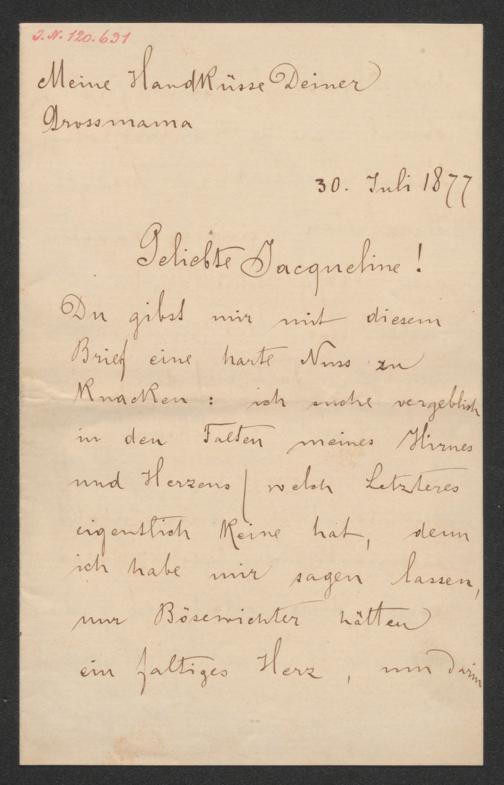 J.N. 120.631
Meine Handküsse Deiner
Grossmama
30. Juli 1877
Geliebte Jacqueline!
Du gibst mir mit diesem
Brief eine harte Nuss zu
Knacken: ich suche vergeblich
in den Falten meines Hirnes
und Herzens / welch Letzteres
eigentlich Keine hat, denn
ich habe mir sagen lassen,
nur Bösewichter hätten
ein faltiges Herz, um darin